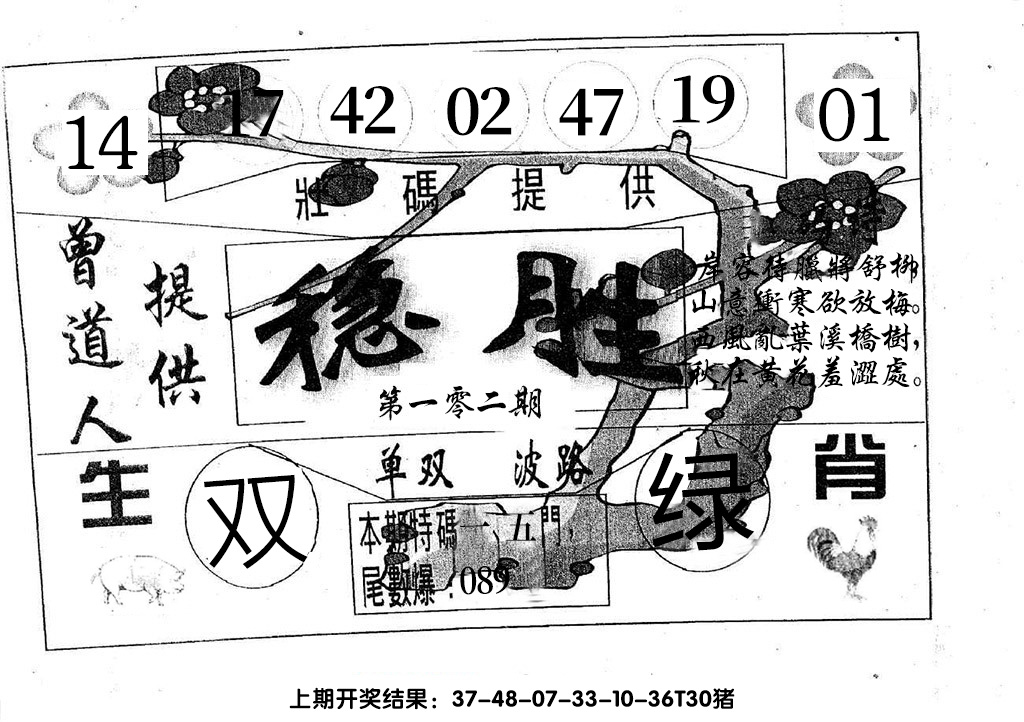 14 17 42 02 47 19 01
壯碼提供
曾道人
提供
稳胜
第一零二期
岸容待臘將舒柳
山意衝寒欲放梅。
西風亂葉溪橋樹，
秋在黄花羞澀處。
单双 波路
生肖
双
绿
本期特碼一、五門，
尾數爆：089
上期开奖结果：37-48-07-33-10-36T30猪